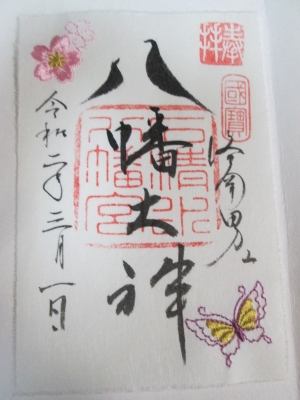 奉拝
國寶
洛南男山
八幡大神
石清水八幡宮
令和二年三月一日